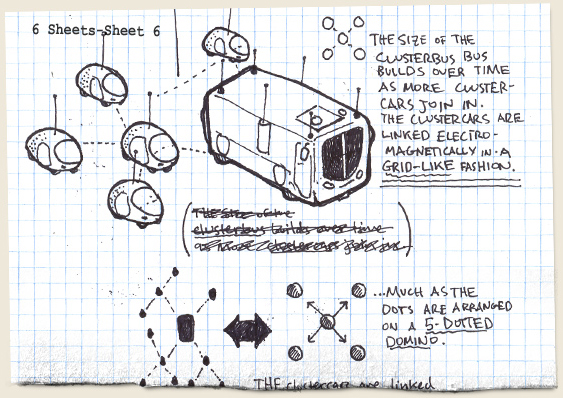 6 Sheets-Sheet 6
THE SIZE OF THE
CLUSTERBUS BUS
BUILDS OVER TIME
AS MORE CLUSTER-
CARS JOIN IN.
THE CLUSTERCARS ARE
LINKED ELECTRO-
MAGNETICALLY IN A
GRID-LIKE FASHION.
The size of the
clusterbus builds over time
as more clustercars join in.
...MUCH AS THE
DOTS ARE ARRANGED
ON A 5-DOTTED
DOMINO.
THE clustercars are linked